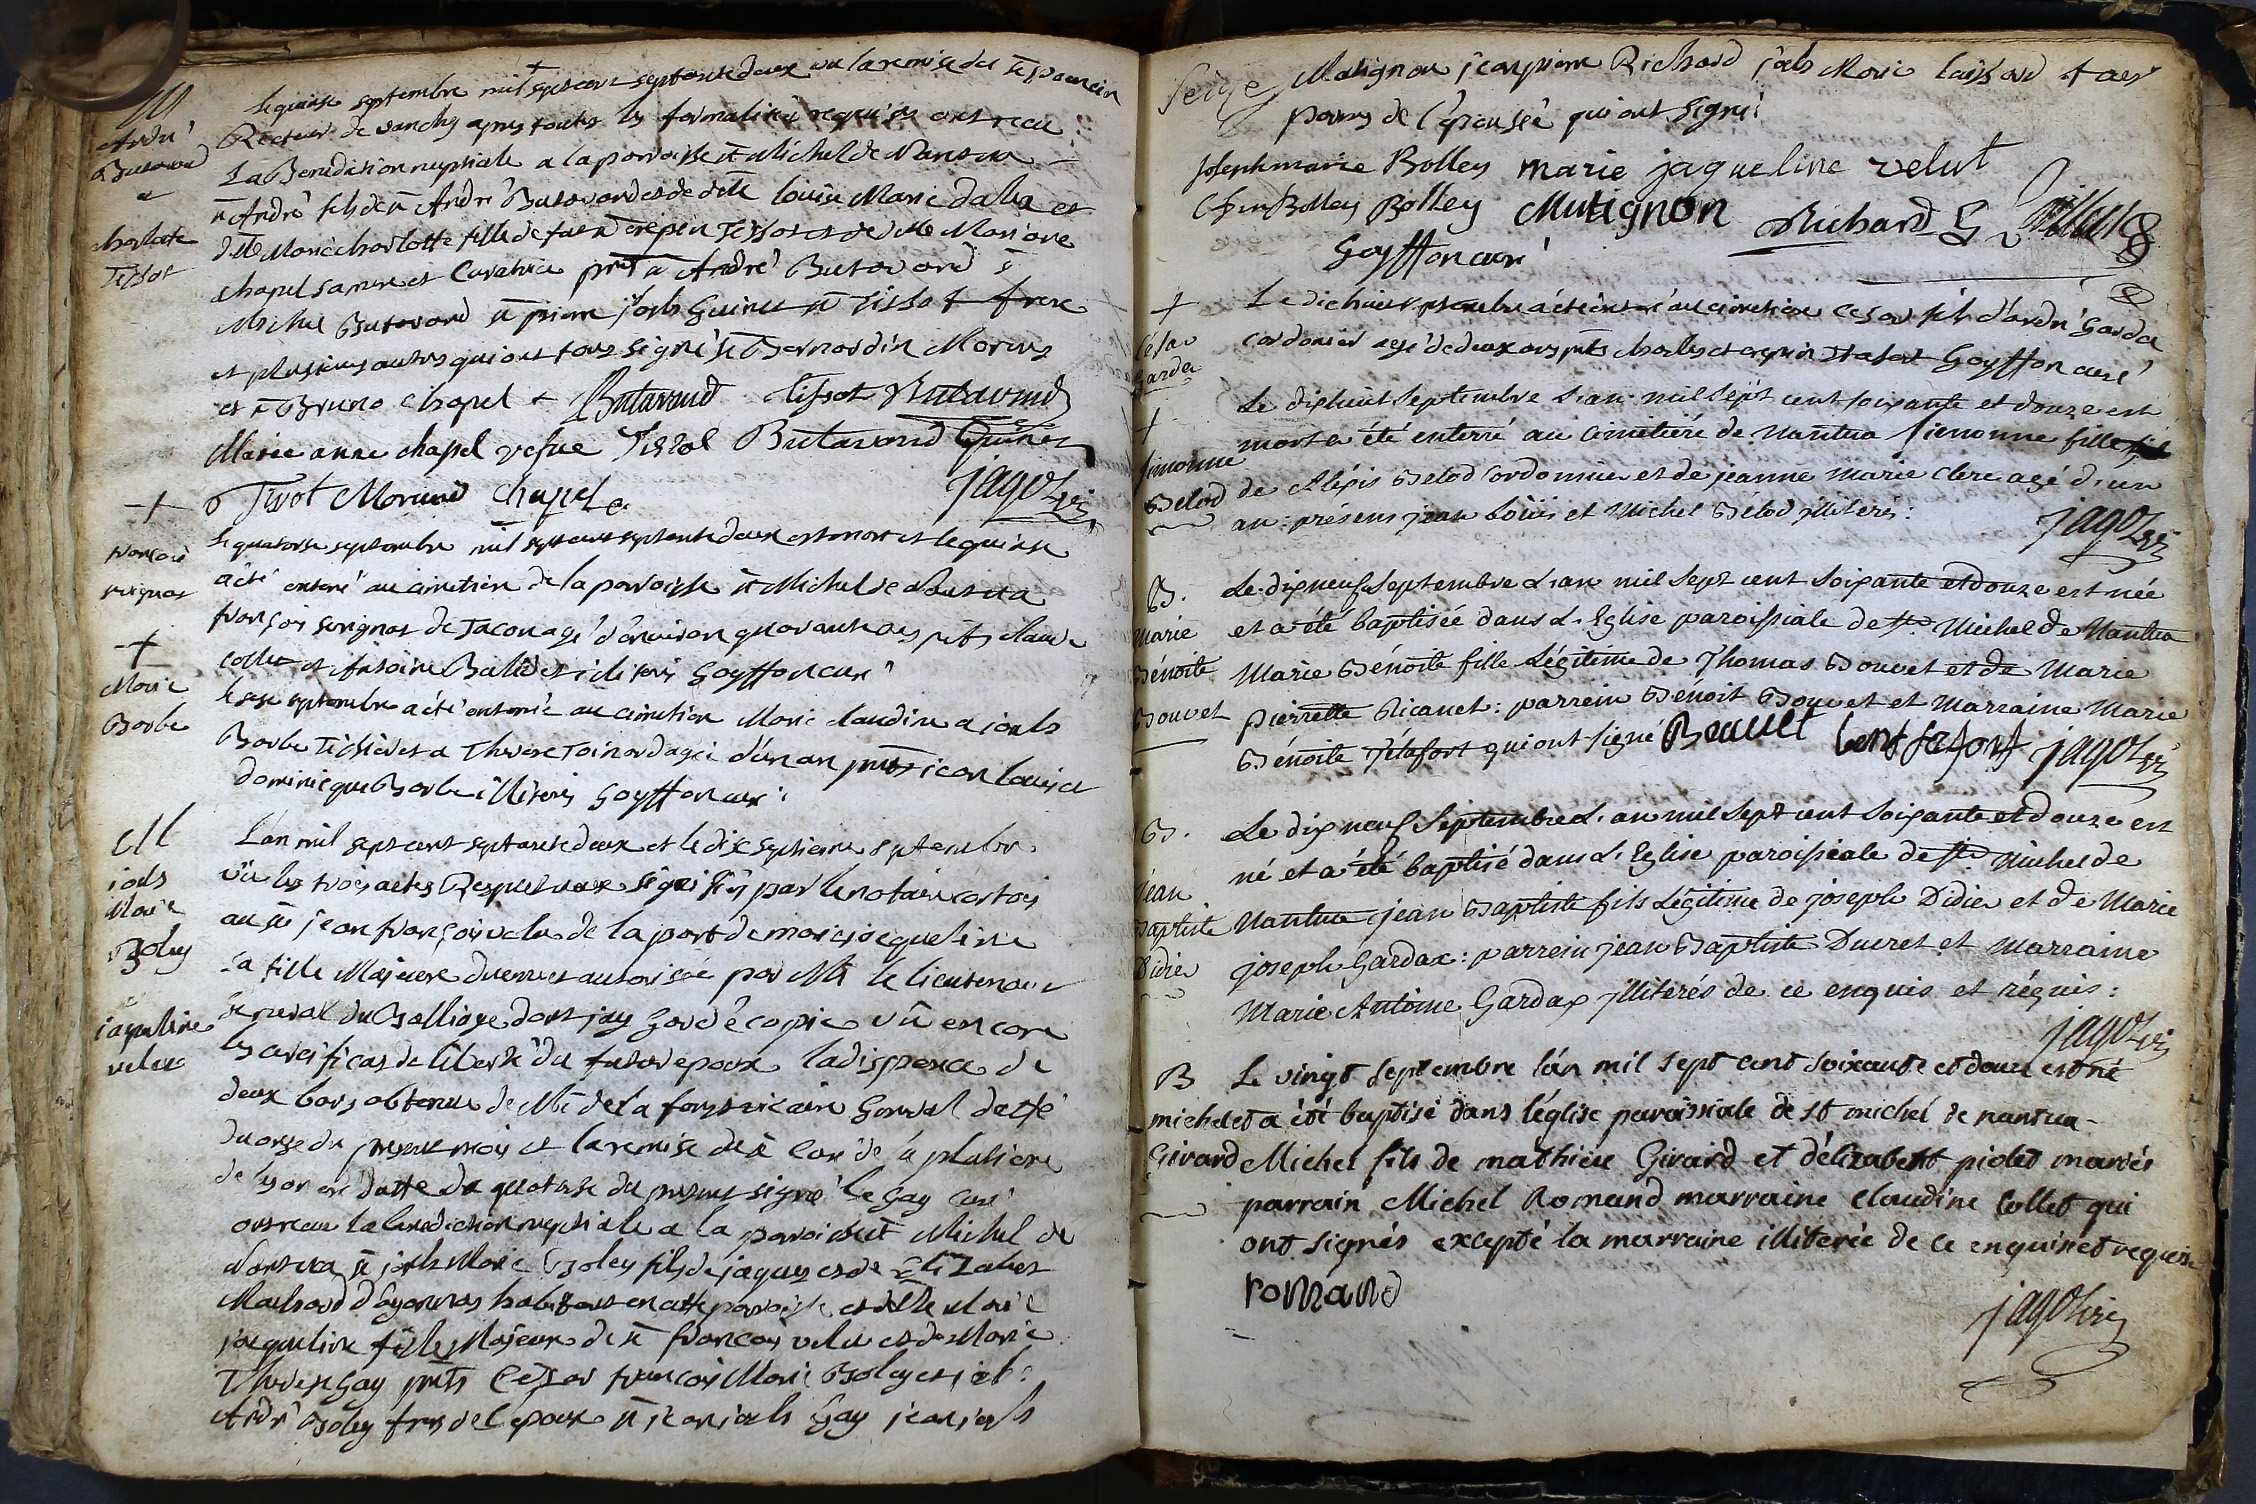 M
André
Butavand
et
charlote
Tissot
Le quinze septembre mil sept cent septante deux vu la remise du sr
Recteur de vanchy apres toutes les formalités requises ont recu
La Benediction nuptiale a la paroisse st Michel de Nantua
sr André fils de sr André Butavand et de dlle louise Marie dalia et
dlle Marie charlotte fille de feu sr crepin Tissot et de dlle Mariane
chapel sa mere et Curatrice pnts sr André Butavand sr
Michel Butavand sr pierre joseph Guinet sr Tissot frere
et plusieurs autres qui ont tous signé sr Bernardin Morand
et sr Bruno chapel Butavand Tissot Butavand
Marie anne chapel vefue Tissot Butavand Guinet
Tissot Morand Chapel jagot vic
+
françois
Le quatorse septembre mil sept cent septante deux est mort et le quinse
a été enterré au cimetiere de la paroisse st Michel de Nantua
françois de Tacon agé d'environ quarante ans pnts claude
collet et Antoine illiterés Goyffon curé
+
Marie
Barbe
Le seze septembre a été enterrée au cimetiere Marie claudine a joseph
Barbe Tissier et a Therese Toinard agée d'un an pnts jean louis et
dominique Barbe illiterés Goyffon curé
M
josls
Marie
Boley
et
jaqueline
velu
L'an mil sept cent septante deux et le dix septieme septembre
vu les trois actes Respectueux signifiés par le notaire cortois
au sr jean françois velu de la part de marie jacqueline
sa fille Majeure duement autorisée par Mr le lieutenant
general du Balliage dont jay gardé copie vu encore
les certificas de liberté du futur epoux la dispense de
deux bans obtenue de Mr de la font vicaire General dattée
du onse du present mois et la remise de sr Curé de la platiere
de lyon en datte du quatorse du present signé le Gay curé
ont recu la benediction nuptiale a la paroisse st Michel de
Nantua sr josls Marie Boley fils de jaques et de Elizabet
Maissard d'oyonnas habitant en cette paroisse et dlle Marie
jacqueline fille Majeure de sr françois velu et de Marie
Therese Gay pnts Cesar françois Marie Boley et
André Boley freres de l'epoux sr jean josls Gay jean josls
Matignon jean pierre Richard josls Marie
parens de l'épousée qui ont signé
Joseph marie Bolley marie jaqueline velut
Bolley Bolley Mutignon Richard
Goyffon curé
+
Cesar
Gardea
Le dix huit septembre a été enterré au cimetiere Cesar fils d'andré Gardea
cordonier agé de deux ans pnts charles et crepin Goyffon curé
+
simonne
Belod
Le dixhuit septembre L'an mil sept cent soixante et douze est
morte a été enterré au cimetiére de Nantua simonne fille
de Aléxis Belod Cordonnier et de jeanne Marie Clerc agé d'un
an: présens jean loüis et Michel Bélod illiterés: jagot vic
B.
Marie
Bénoite
Bouvet
Le dixneuf septembre L'an mil sept cent soixante et douze est née
et a été baptisée dans L'Eglise paroissiale de st. Michel de Nantua
Marie Bénoite fille Légitime de Thomas Bouvet et de Marie
pierrette Ricanet: parrein Bénoit Bouvet et Marraine Marie
Bénoite Tétafort qui ont signé jagot vic
B.
jean
Baptiste
Didier
Le dixneuf septembre L'an mil sept cent soixante et douze est
né et a été baptisé dans L'Eglise paroissiale de st. Michel de
Nantua jean Baptiste fils Légitime de joseph Didier et de Marie
joseph Gardax: parrein jean Baptiste Ducret et Marraine
Marie Antoine Gardax illiterés de ce enquis et réquis:
jagot vic
B
michel
Girard
Le vingt septembre l'an mil sept cent soixante et douze est né
et a été baptisé dans l'église paroissiale de st michel de nantua
Michel fils de mathieu Girard et d'élizabeth piolet mariés
parrain Michel Romand marraine claudine Collet qui
ont signés excepté la marraine illiterée de ce enquise et requise
romand
jagot vic